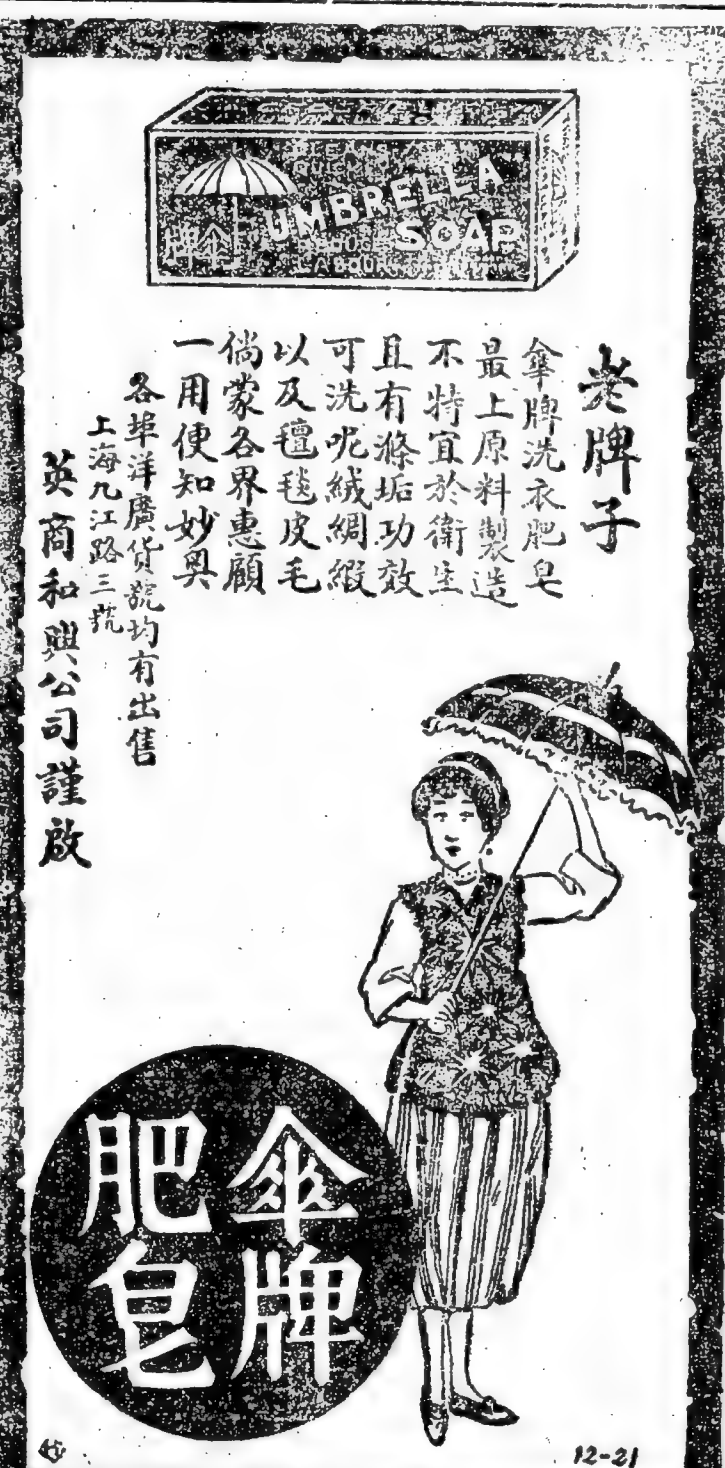 UMBRELLA
SOAP
傘牌
老牌子
傘牌洗衣肥皂
最上原料製造
不特宜於衛生
且有滌垢功效
可洗呢絨綢緞
以及氊毯皮毛
倘蒙各界惠顧
一用便知妙奧
各埠洋廣貨號均有出售
上海九江路三號
英商和興公司謹啟
傘牌
肥皂
12-21